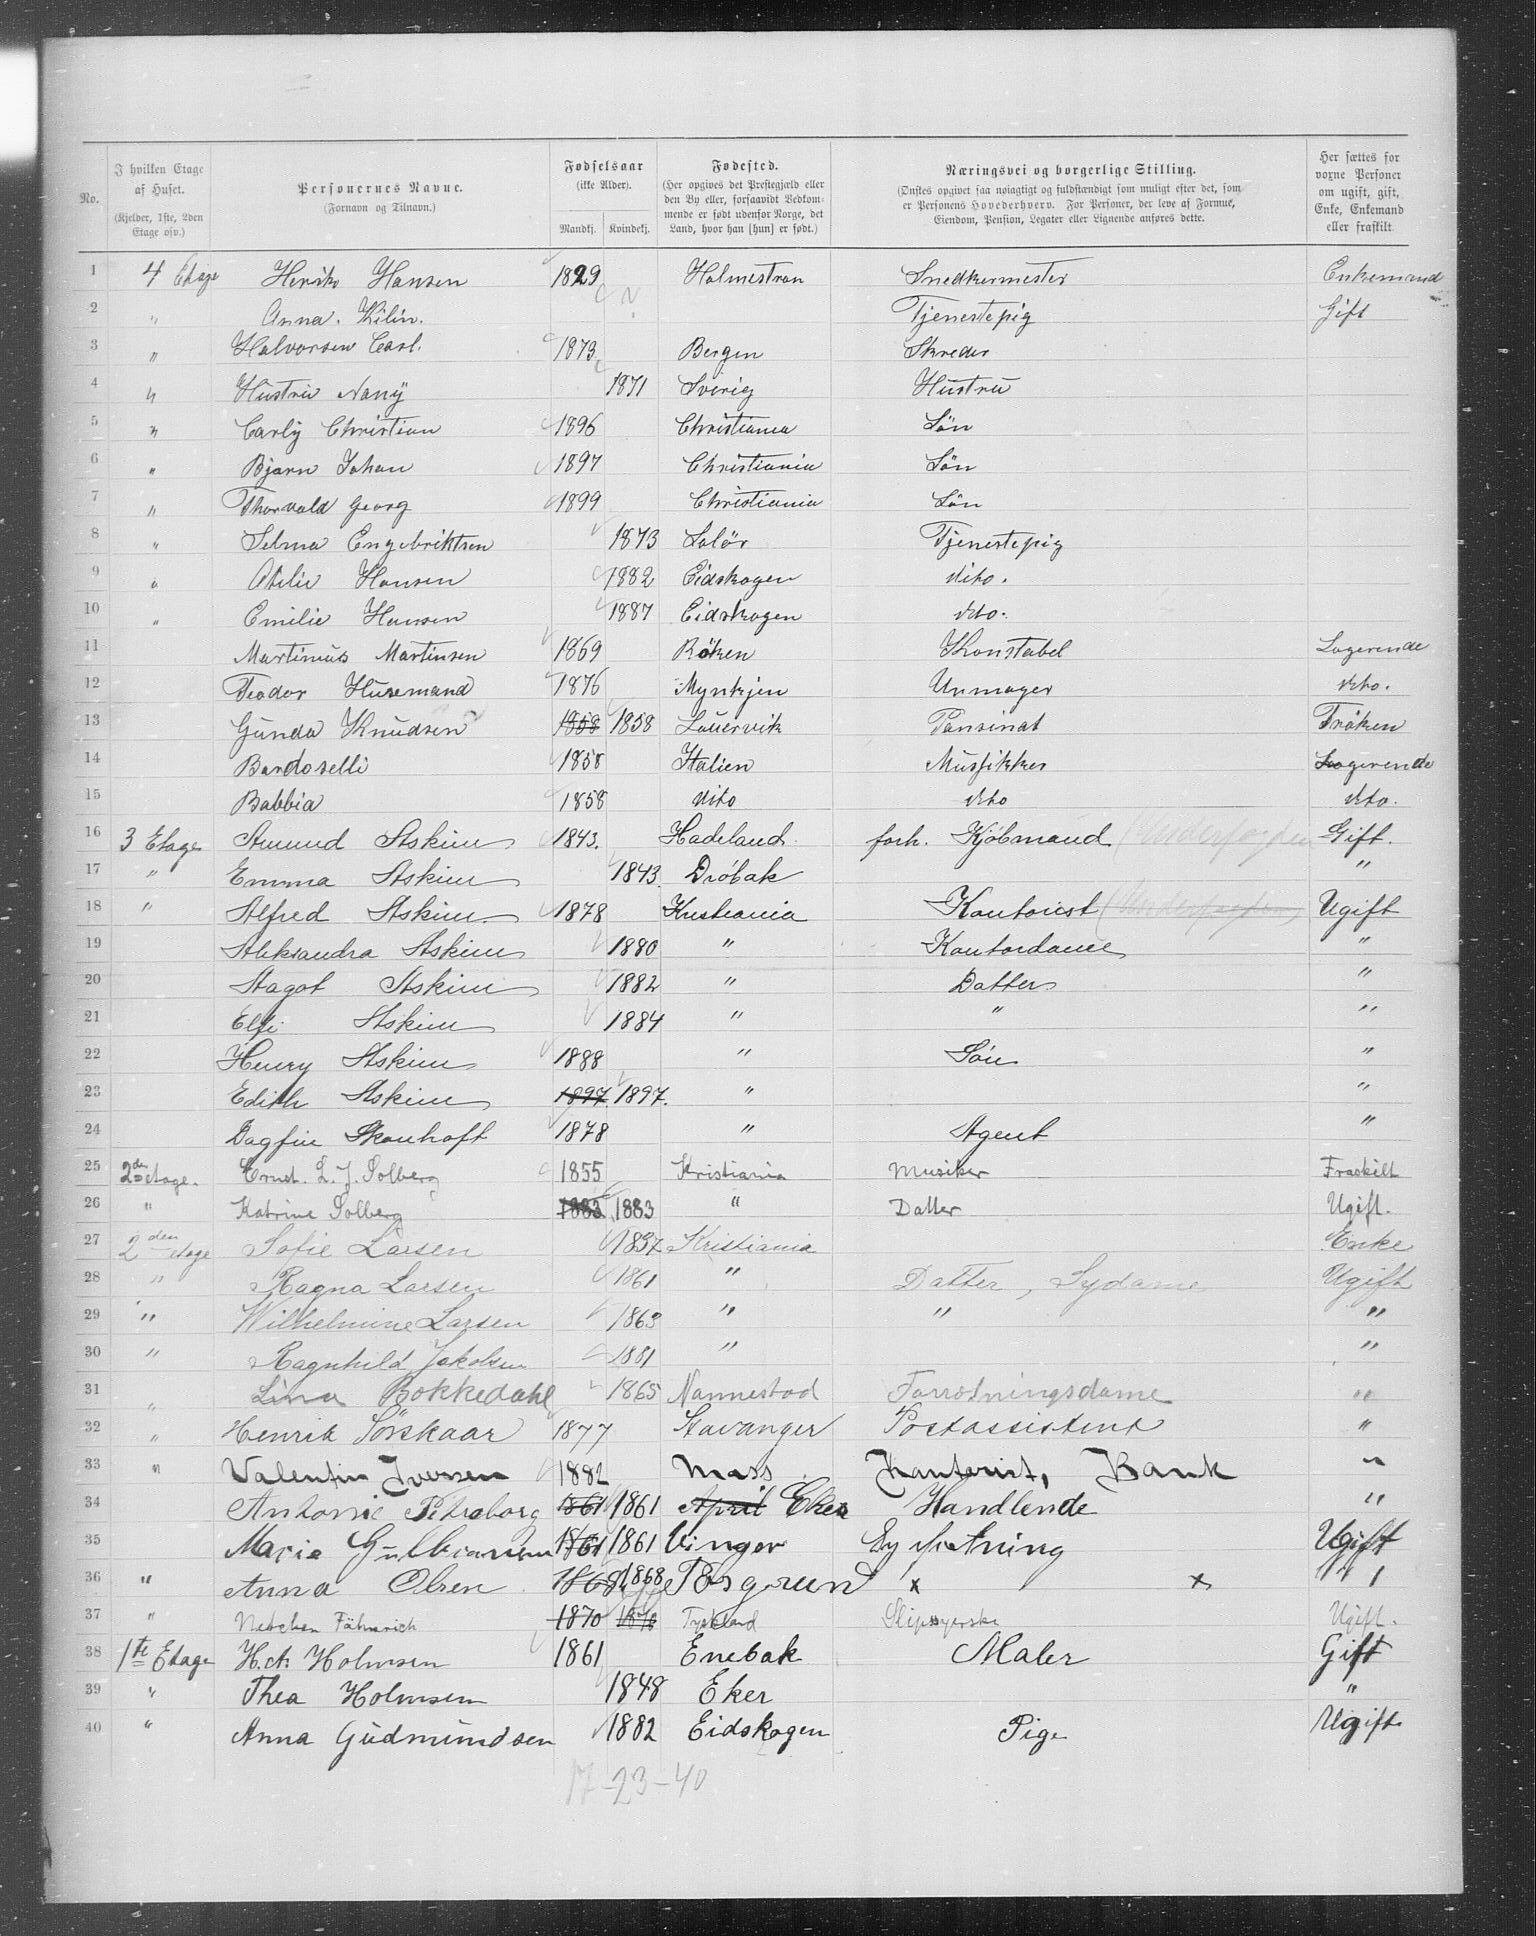 No.
I hvilken Etage af Huset. (Kjelder, 1ste, 2den Etage osv.)
Personernes Navne. (Fornavn og Tilnavn.)
Fødselsaar (ikke Alder). Mandkj. Kvindekj.
Fødested. (Her opgives det Prestegjæld eller den By eller, forsaavidt Bedkommende er født udenfor Norge, det Land, hvor han [hun] er født.)
Næringsvei og borgerlige Stilling. (Ønskes opgivet saa nøiagtigt og fuldstændigt som muligt efter det, som er Personens Hovederhverv. For Personer, der leve af Formue, Eiendom, Pension, Legater eller Lignende anføres dette.
Her sættes for voxne Personer om ugift, gift, Enke, Enkemand eller fraskilt
1 4 Etage Henrik Hansen 1829 Holmestran Snedkermester Enkemand
2 " Anna Tjenestepig Gift
3 " Halvorsen Carl. 1873 Bergen Skreder
4 " Hustru Nany 1871 Sverig Hustru
5 " Carly Christian 1896 Christiania Sön
6 " Bjarn Johan 1897 Christiania Sön
7 " Thorvald Georg 1899 Christiania Sön
8 " Selma Engebriktsen 1873 Solör Tjenestepig
9 " Otilie Hansen 1882 Eidskogen dito.
10 " Emilie Hansen 1887 Eidskogen dto.
11 Martinus Martinsen 1869 Röken Konstabel Logerende
12 Teodor Husemand 1876 Urmager dto.
13 Gunda Knudsen 1858 1858 Lauervik Pansinat Fröken
14 Bardoselli 1858 Italien Musikker Logerende
15 Babbia 1858 dito dto dto.
16 3 Etage Amund Askim 1843. Hadeland. forh. Kjöbmand Gift.
17 " Emma Askim 1843. Dröbak "
18 " Alfred Askim 1878 Kristiania Kontorist Ugift
19 Aleksandra Askim 1880 " Kontordame "
20 Aagot Askim 1882 " Datter "
21 Elfi Askim 1884 " " "
22 Henry Askim 1888 " Sön "
23 Edith Askim 1897. 1897. " "
24 Dagfin Skouhoft 1878 " Agent "
25 2den etage. Ernst. L. J. Solberg 1855 Kristiania Musiker Fraskilt
26 " Katrine Solberg 1883 1883 " Datter Ugift.
27 2den etage Sofie Larsen 1837 Kristiania Enke
28 " Ragna Larsen 1861 " Datter, Sydame Ugift
29 " Wilhelmine Larsen 1863 " " "
30 " Ragnhild Jakobsen 1881 " "
31 " Lina Bokkedahl 1865 Nannestad Forretningsdame "
32 " Henrik Sörskaar 1877 Stavanger Postassistent "
33 " Valentin Iversen 1882 Moss Kontorist, Bank "
34 Antonie Petraborg 1861 1861 April Eker Handlende "
35 Marie Gulbransen 1861 1861 Vinger Syforretning Ugift
36 " Anna Olsen 1868 1868 Porsgrund x x "
37 " Netchen Fähnrich 1870 1870 Tyskland Slipsyerske Ugift.
38 1te Etage H. A. Holmsen 1861 Enebak Maler Gift
39 " Thea Holmsen 1848 Eker "
40 " Anna Gudmundsen 1882 Eidskogen Pige Ugift
17-23-40